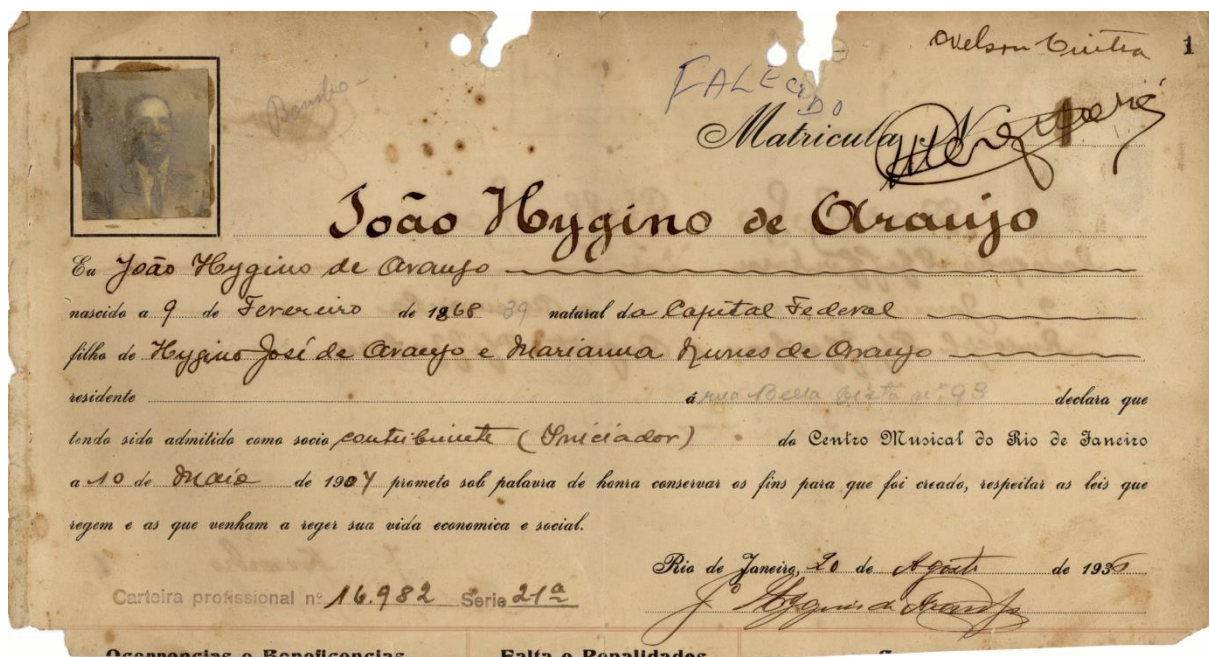 Nelson Cintra
1
Bombo
FALECIDO
Matricula N
João Hygino de Araujo
Eu João Hygino de Araujo
nascido a 9 de Fevereiro de 1868 39 natural da Capital Federal
filho de Hygino José de Araujo e Marianna Nunes de Araujo
residente á rua Bella Vista nº 93 declara que
tendo sido admitido como socio contribuinte (Iniciador) do Centro Musical do Rio de Janeiro
a 10 de Maio de 1907 prometo sob palavra de honra conservar os fins para que foi creado, respeitar as leis que
regem e as que venham a reger sua vida economica e social.
Rio de Janeiro, 20 de Agosto de 1936
Carteira profissional nº 16.982 Serie 21ª
Jº Hygino de Araujo
Ocorrencias e Beneficencias Falta e Penalidades